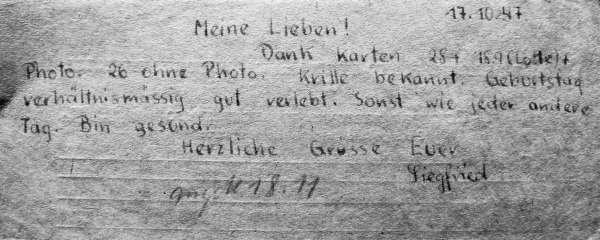 17.10.47
Meine Lieben!
Dank Karten 25+ 18.9(Lotte)+
Photo. 26 ohne Photo. Krille bekannt. Geburtstag
verhältnismässig gut verlebt. Sonst wie jeder andere
Tag. Bin gesund.
Herzliche Grüsse Euer
Siegfried
18.11